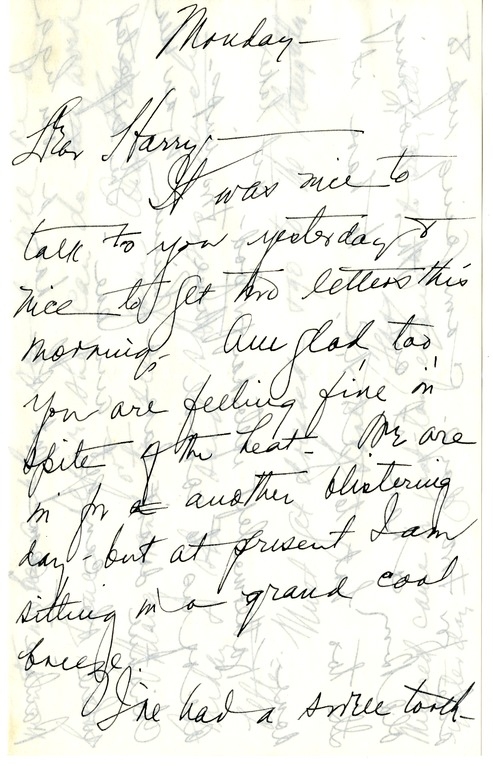 Monday —
Dear Harry —
It was nice to
talk to you yesterday &
nice to get two letters this
morning. Am glad too
you are feeling fine in
spite of the heat - We are
in for another blistering
day - but at present I am
sitting in a grand cool
breeze.
I've had a tooth-